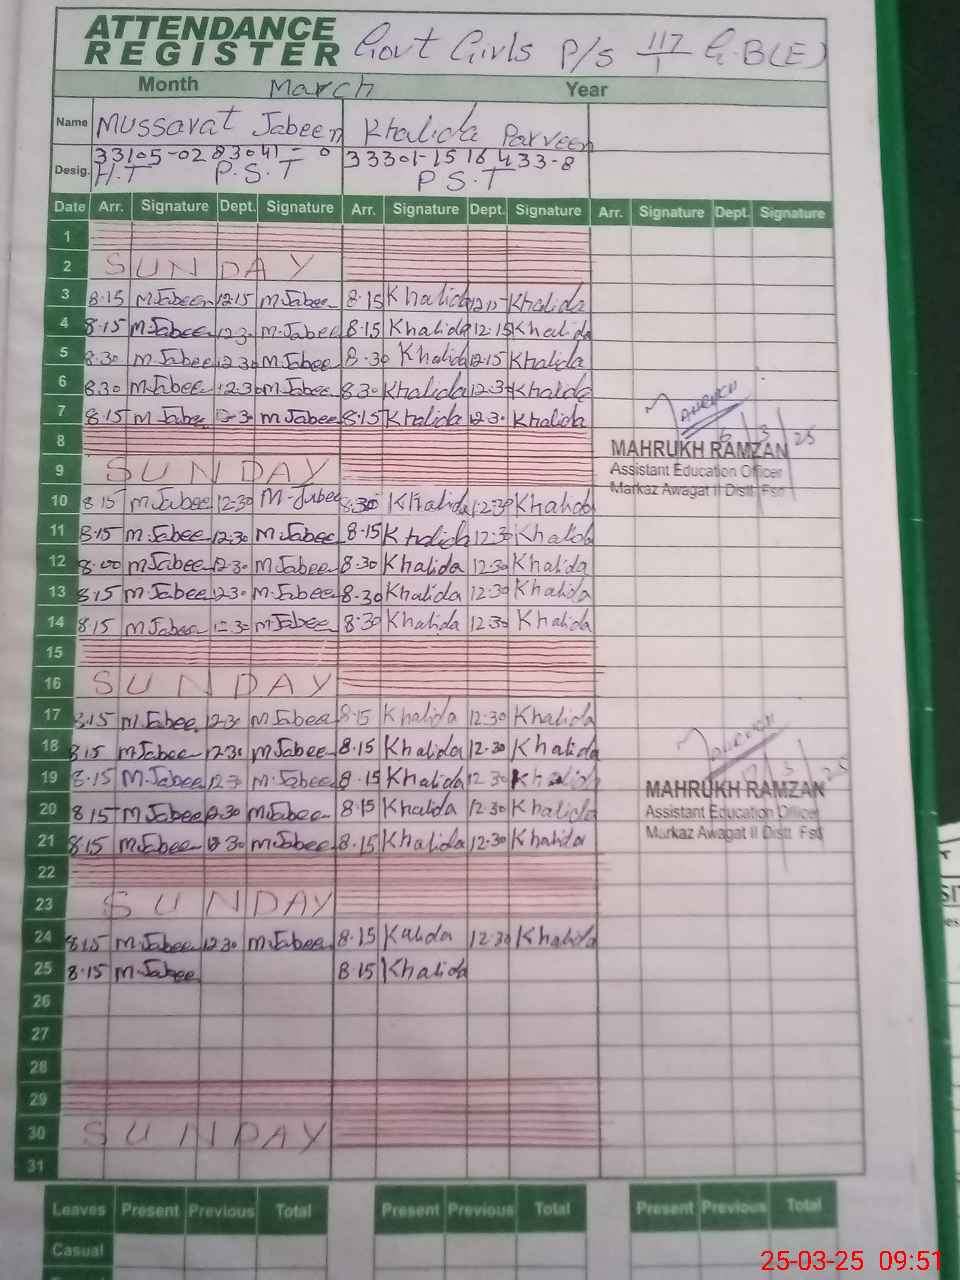 ATTENDANCE REGISTER Govt Girls P/S 117/1 G.B(E)
Month March Year
Name Mussarat Jabeen Khalida Parveen
33105-0283041-0 33301-1516433-8
Desig. H.T P.S.T P S.T
Date Arr. Signature Dept. Signature Arr. Signature Dept. Signature Arr. Signature Dept. Signature
1
2 SUNDAY
3 8.15 M.Jabeen 12.15 M.Jabee 8.15 Khalida Khalida
4 8.15 M.Jabee 12.30 M.Jabee 8.15 Khalida 12.15 Khalida
5 8.30 M.Jabee 12.30 M.Jabee 8.30 Khalida 12.15 Khalida
6 8.30 M.Jabee 12.30 M.Jabee 8.30 Khalida 12.30 Khalida
7 8.15 M.Jabee M.Jabee 8.15 Khalida 12.30 Khalida
6/3/25
8
MAHRUKH RAMZAN
9 SUNDAY
Assistant Education Officer
Markaz Awagat II Distt Fsd
10 8.15 M.Jabee 12.30 M-Jabee 8.30 Khalida 12.30 Khalida
11 8.15 M.Jabee 12.30 M.Jabee 8.15 Khalida 12.30 Khalida
12 8.00 M.Jabee 12.30 M.Jabee 8.30 Khalida 12.30 Khalida
13 8.15 M.Jabee 12.30 M.Jabee 8.30 Khalida 12.30 Khalida
14 8.15 M.Jabee M.Jabee 8.30 Khalida 12.30 Khalida
15
16 SUNDAY
17 8.15 M.Jabee 12.30 M.Jabee 8.15 Khalida 12.30 Khalida
18 8.15 M.Jabee 12.30 M.Jabee 8.15 Khalida 12.30 Khalida
19 8.15 M.Jabee 12.30 M.Jabee 8.15 Khalida 12.30 Khalida
MAHRUKH RAMZAN
20 8.15 M.Jabee 12.30 M.Jabee 8.15 Khalida 12.30 Khalida
Assistant Education Officer
Markaz Awagat II Distt Fsd
21 8.15 M.Jabee 12.30 M.Jabee 8.15 Khalida 12.30 Khalida
22
23 SUNDAY
24 8.15 M.Jabee 12.30 M.Jabee 8.15 Kalida 12.30 Khalida
25 8.15 M.Jabee 8.15 Khalida
26
27
28
29
30 SUNDAY
31
Leaves Present Previous Total Present Previous Total Present Previous Total
Casual
25-03-25 09:51